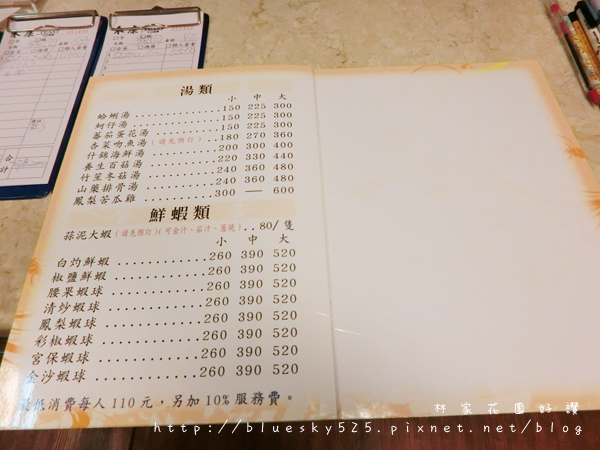 湯類
小 中 大
蛤蜊湯 .............. 150 225 300
蚵仔湯 .............. 150 225 300
蕃茄蛋花湯 ........... 150 225 300
杏菜吻魚湯(請先預訂) .. 180 270 360
什錦海鮮湯 ........... 200 300 400
養生百菇湯 ........... 220 330 440
竹笙冬菇湯 ........... 240 360 480
山藥排骨湯 ........... 240 360 480
鳳梨苦瓜雞 ........... 300 — 600
鮮蝦類
蒜泥大蝦(請先預訂)(可金汁、茄汁、蔥燒) .. 80/隻
小 中 大
白灼鮮蝦 ............ 260 390 520
椒鹽鮮蝦 ............ 260 390 520
腰果蝦球 ............ 260 390 520
清炒蝦球 ............ 260 390 520
鳳梨蝦球 ............ 260 390 520
彩椒蝦球 ............ 260 390 520
宮保蝦球 ............ 260 390 520
金沙蝦球 ............ 260 390 520
最低消費每人110元，另加10%服務費。
林家花園好讚
http://bluesky525.pixnet.net/blog